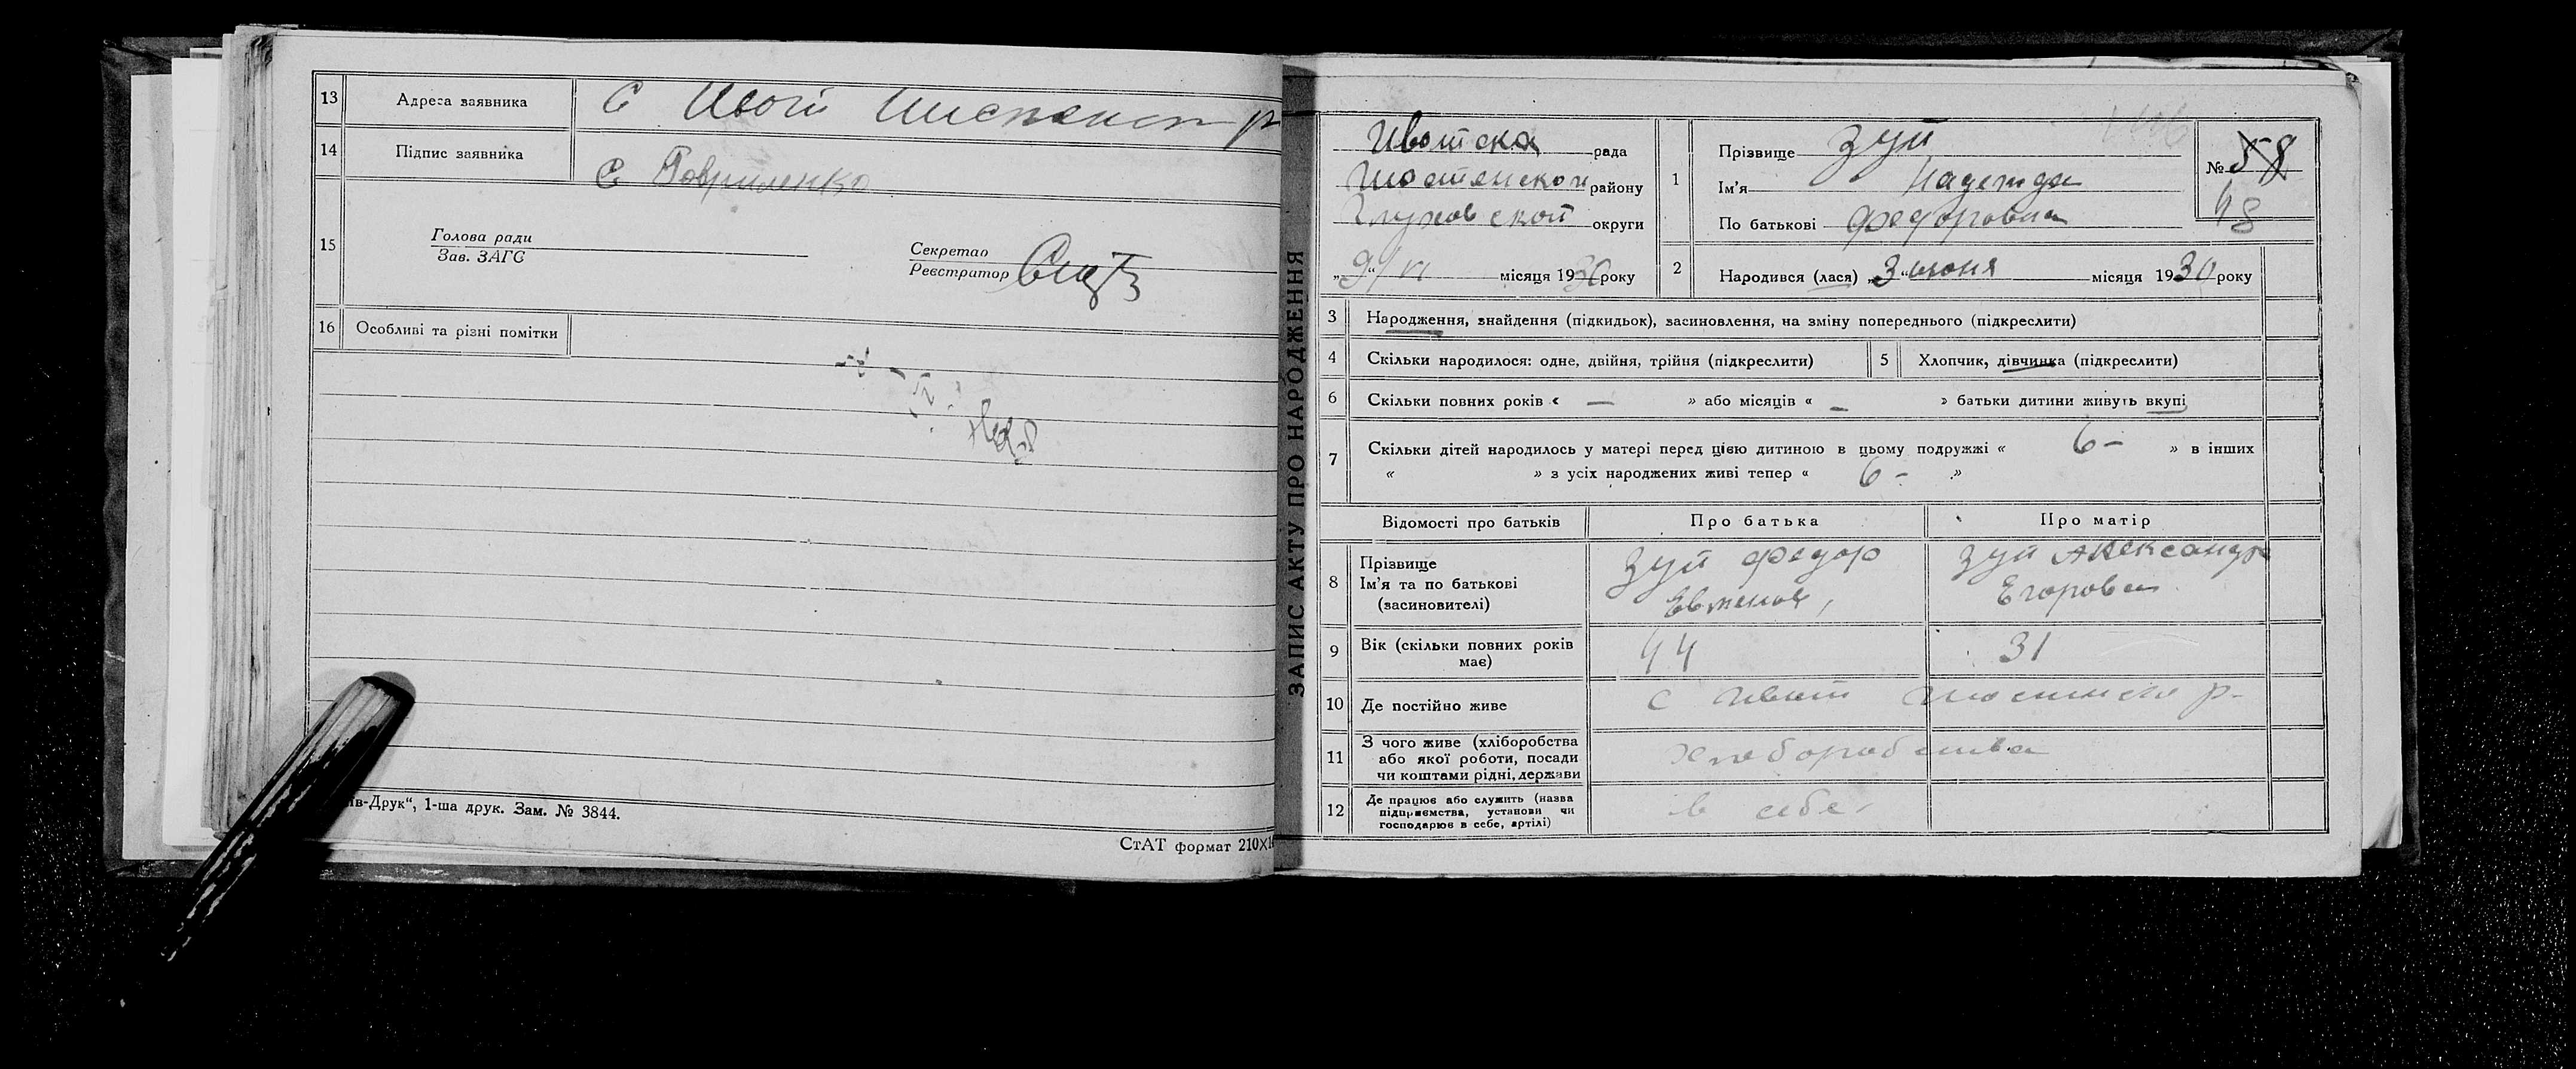 13 Адреса заявника С Ивот Шостенск р
14 Підпис заявника С Говриленко
15 Голова ради
Зав. ЗАГС
Секретар
Реєстратор
16 Особливі та різні помітки
ів-Друк“, 1-ша друк. Зам. № 3844.
СтАТ формат 210×1
ЗАПИС АКТУ ПРО НАРОДЖЕННЯ
Ивотска рада
Шостенской району
Глуховской округи
„9“ VI місяця 1930 року
1 Прізвище Зуй
Ім’я Надежда
По батькові Федоровна
№ 58
48
2 Народився (лася) „3“ июня місяця 1930 року
3 Народження, знайдення (підкидьок), засиновлення, на зміну попереднього (підкреслити)
4 Скільки народилося: одне, двійня, трійня (підкреслити)
5 Хлопчик, дівчинка (підкреслити)
6 Скільки повних років « — » або місяців « – » батьки дитини живуть вкупі
7 Скільки дітей народилось у матері перед цією дитиною в цьому подружжі « 6 – » в інших
« » з усіх народжених живі тепер « 6 – »
Відомості про батьків Про батька Про матір
8 Прізвище
Ім’я та по батькові
(засиновителі)
Зуй Федор
Зуй Александра
Егоровна
9 Вік (скільки повних років
має)
44 31
10 Де постійно живе с Ивот Шостенск р-
11 З чого живе (хліборобства
або якої роботи, посади
чи коштами рідні, держави
хлеборобства
12 Де працює або служить (назва
підприємства, установи чи
господарює в себе, артілі)
в себе